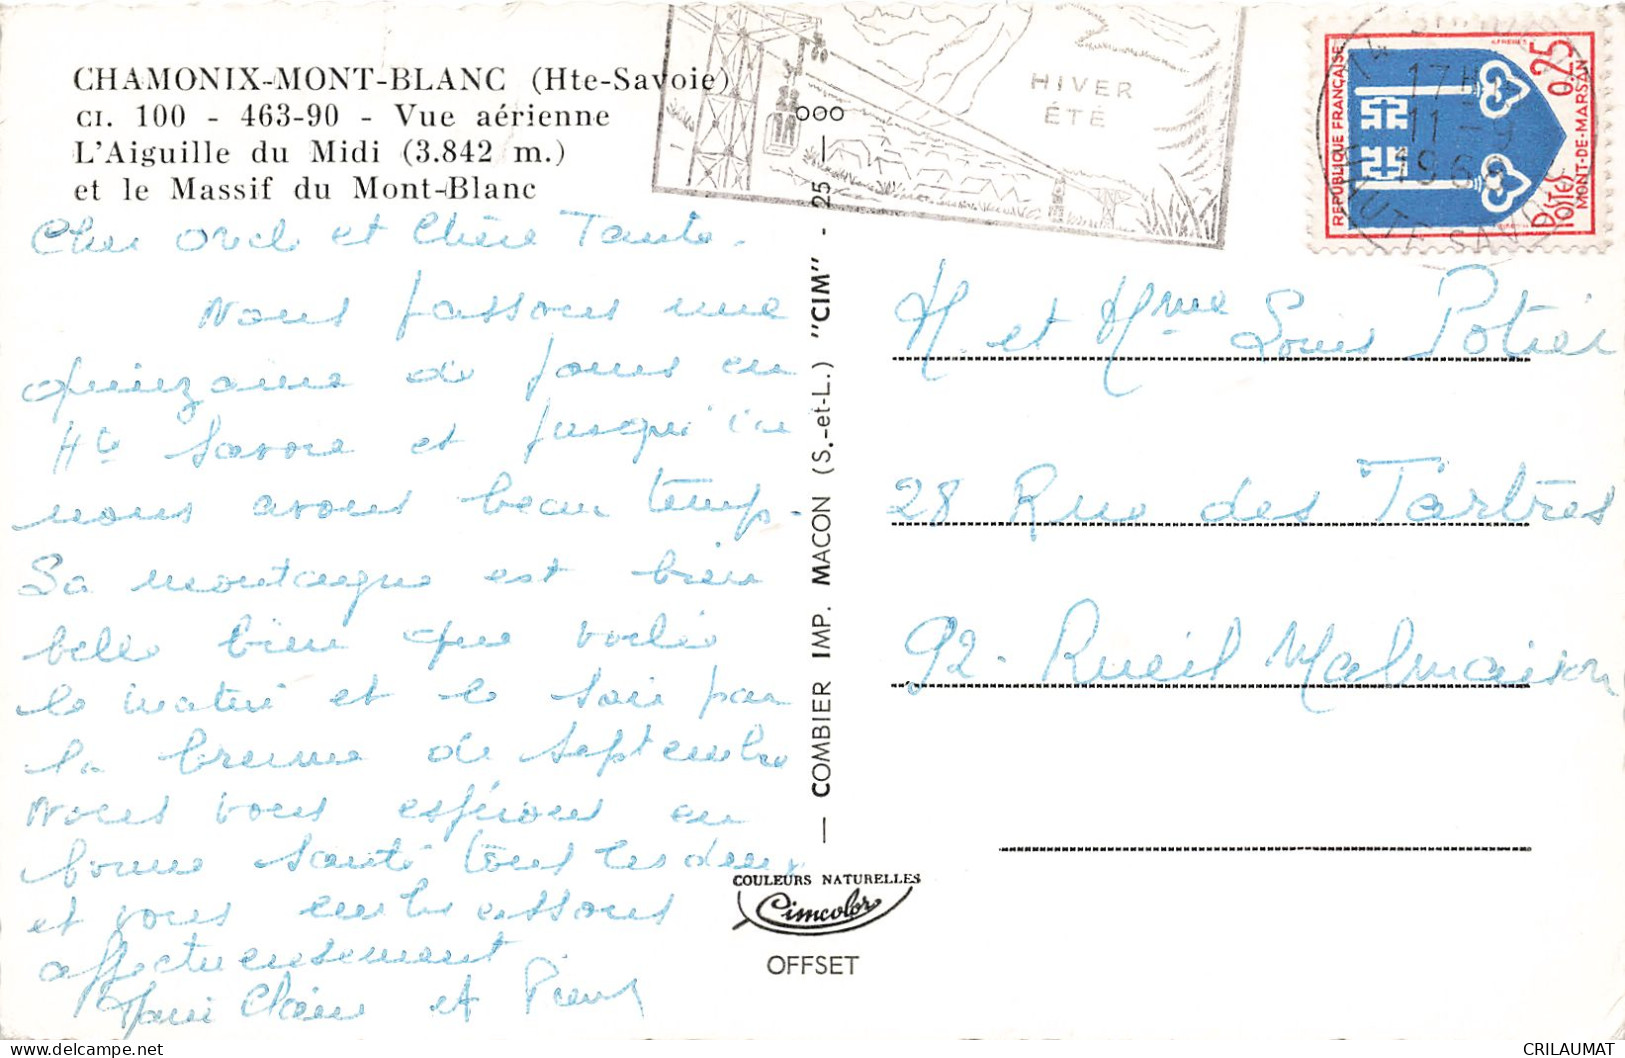 CHAMONIX-MONT-BLANC (Hte-Savoie)
CI. 100 - 463-90 - Vue aérienne
L'Aiguille du Midi (3.842 m.)
et le Massif du Mont-Blanc
Cher Oncle et Chère Tante.
Nous passons une
quinzaine de jours en
Hte Savoie et jusqu'ici
nous avons beau temps.
La montagne est bien
belle bien que voilée
le matin et le soir par
la brume de septembre
Nous vous espérons en
bonne santé tous les deux
et vous embrassons
affectueusement
Marie Claire et Pierre
HIVER
ÉTÉ
000
— COMBIER IMP. MACON (S.-et-L.) "CIM" - 25 —
COULEURS NATURELLES
Cimcolor
OFFSET
RÉPUBLIQUE FRANÇAISE
0,25
POSTES
MONT-DE-MARSAN
17H
11-9
1968
HAUTE SAVOIE
M. et Mme Louis Potier
28 Rue des Tartres
92. Rueil Malmaison
delcampe.net
CRILAUMAT